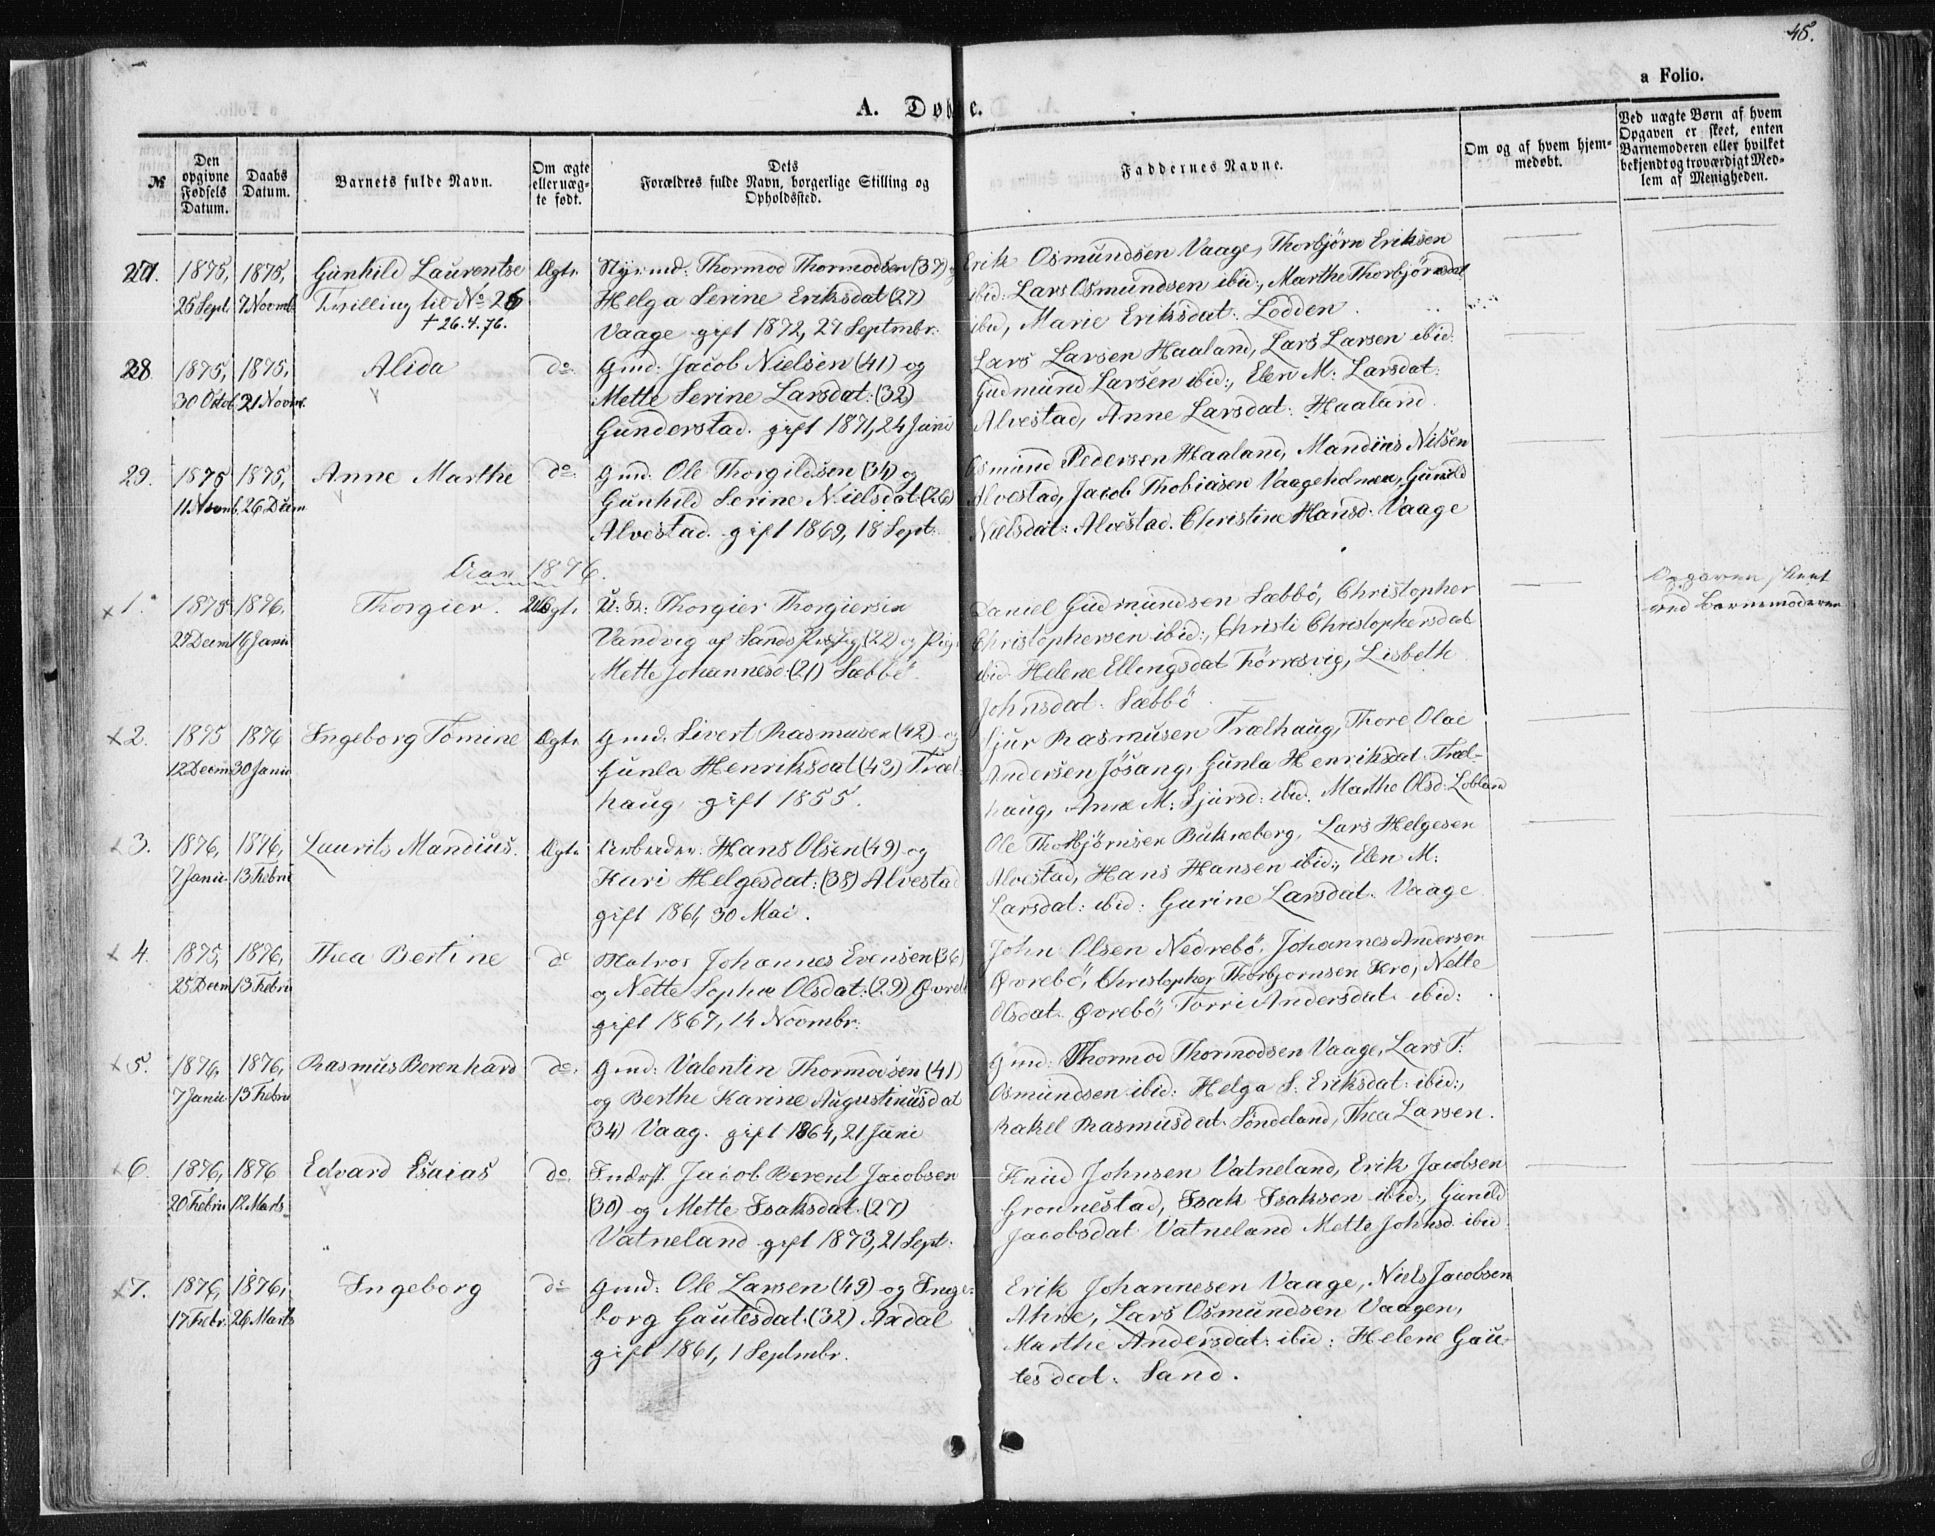 45.
a Folio.
A. Døbte.
№
Den opgivne Fødsels Datum.
Daabs Datum.
Barnets fulde Navn.
Om ægte eller uægte født.
Dets Forældres fulde Navn, borgerlige Stilling og Opholdssted.
Faddernes Navne.
Om og af hvem hjemmedøbt.
Ved uægte Børn af hvem Opgaven er skeet, enten Barnemoderen eller hvilket bekjendt og troværdigt Medlem af Menigheden.
27.
1875, 25 Sept.
1875, 7 Novemb
Gunhild Laurentse
Tvilling til No 26
† 26.4.76.
Ægte
Gmd: Thormod Thormodsen (37) og
Helga Serine Eriksdat (27)
Vaage gift 1872, 27 Septmbr.
Erik Osmundsen Vaage, Thorbjørn Eriksen
ibid: Lars Osmundsen ibid:, Marthe Thorbjørnsdat
ibid, Marie Eriksdat: Lodden.
28.
1875, 30 Octob.
1875, 21 Novmr.
Alida
do
Gmd: Jacob Nielsen (41) og
Mette Serine Larsdat: (32)
Gunderstad. gift 1871, 24 Juni
Lars Larsen Haaland, Lars Larsen ibid.
Gudmund Larsen ibid:, Elen M: Larsdat:
Alvestad, Anne Larsdat: Haaland.
29.
1875 11 Novmb.
1875, 26 Decem
Anne Marthe
do
Gmd: Ole Thorgildsen (34) og
Gunhild Serine Nielsdat (26)
Alvestad. gift 1869, 18 Sept.
Osmund Pedersen Haaland, Mandius Nilsen
Alvestad, Jacob Thobiasen Vaageholmen, Gunild
Nielsdat: Alvestad. Christine Hansd: Vaage
Aar 1876.
× 1.
1875 27 Decem
1876. 16 Janu
Thorgier.
Uægte
U: K: Thorgier Thorgiersen
Vandvig af Sands Præstg. (22) og Pige
Mette Johannesd: (21) Sæbbø.
Daniel Gudmundsen Sæbbø, Christopher
Christophersen ibid:, Christi Christophersdat
ibid Helene Ellingsdat Tørresvig, Lisbeth
Johnsdat: Sæbbø.
Opgaven skeet
ved Barnemoderen
× 2.
1875 12 Decem
1876 30 Janu
Ingeborg Tomine
Ægte
Gmd: Sivert Rasmusen (42) og
Gunla Henriksdat (43) Træl-
haug, gift 1855.
Sjur Rasmusen Trælhaug, Thore Olai
Andersen Jøsang, Gunla Henriksdat Træl-
haug, Anne M: Sjursd: ibid. Marthe Olsd: Lobland
× 3.
1876, 7 Janu
1876, 13 Febru
Laurits Mandius.
Ægte
Arbeider: Hans Olsen (49) og
Kari Helgesdat: (38) Alvestad
gift 1861, 30 Mai.
Ole Thorbjørnsen Bukneberg, Lars Helgesen
Alvestad, Hans Hansen ibid:, Elen M:
Larsdat: ibid: Gurine Larsdat. Vaage
× 4.
1875, 25 Decm
1876, 13 Febru
Thea Bertine
do
Matros Johannes Evensen (36)
og Nette Sophie Olsdat: (29) Øvrebø
gift 1867, 14 Novmbr:
John Olsen Nedrebø, Johannes Andersen
Øvrebø, Christopher Thorbjørnsen Kro, Nette
Olsdat. Øvrebø, Torri Andersdat. ibid:
× 5.
1876, 7 Janu
1876, 13 Febru
Rasmus Berenhard
do
Gmd: Valentin Thormodsen (41)
og Berthe Karine Augustinusdat
(34) Vaag. gift 1864, 21 Juni
Gmd: Thormod Thormodsen Vaage, Lars T:
Osmundsen ibid: Helga S. Eriksdat: ibid:,
Rakel Rasmusdat. Søndeland, Thea Larsen.
× 6.
1876, 20 Febru
1876 12 Marts
Edvard Esaias
do
Inderst. Jacob Berent Jacobsen
(30) og Mette Isaksdat (27)
Vatneland gift 1873, 21 Sept.
Knud Johnsen Vatneland, Erik Jacobsen
Gronnestad, Isak Isaksen ibid:, Gunild
Jacobsdat Vatneland Mette Johnsd ibid
× 7.
1876, 17 Febr.
1876, 26 Marts
Ingeborg
do
Gmd: Ole Larsen (49) og Inge-
borg Gautesdat. (32) Axdal
gift 1861, 1 Septmbr.
Erik Johannesen Vaage, Niels Jacobsen
Ahne, Lars Osmundsen Vaagen,
Marthe Andersdat: ibid: Helene Gau-
tesdat: Sand.